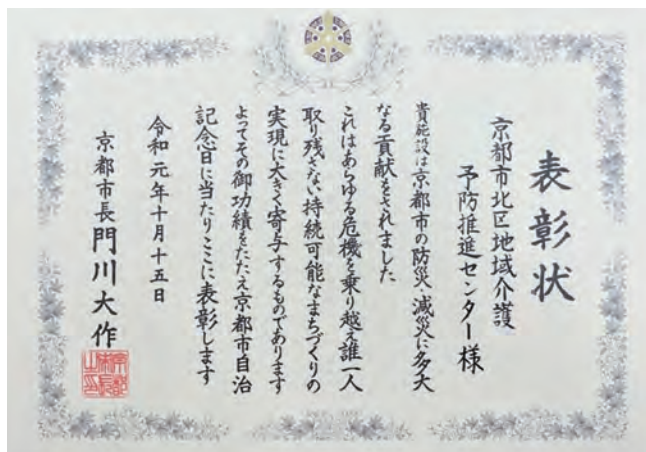 表彰状
京都市北区地域介護
予防推進センター様
貴施設は京都市の防災、減災に多大
なる貢献をされました
これはあらゆる危機を乗り越え誰一人
取り残さない持続可能なまちづくりの
実現に大きく寄与するものであります
よってその御功績をたたえ京都市自治
記念日に当たりここに表彰します
令和元年十月十五日
京都市長門川大作